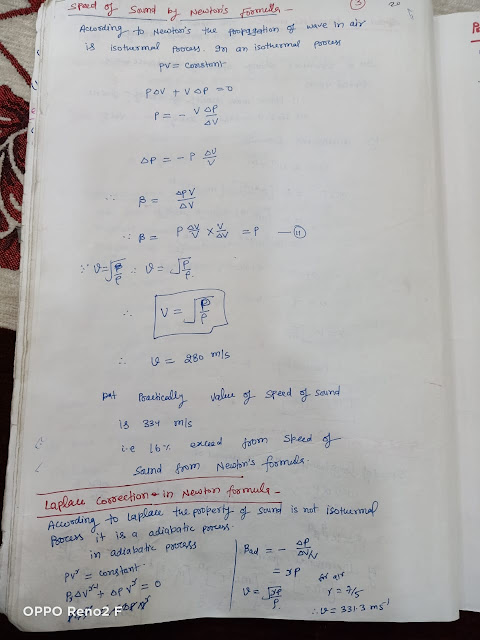 Speed of Sound by Newton's Formula -
3
According to Newton's the propagation of wave in air
is isothermal Process. In an isothermal process
PV = constant
PΔV + VΔP = 0
P = - VΔP/ΔV
ΔP = - P ΔV/V
∴ β = ΔPV/ΔV
∴ β = P ΔV/V × V/ΔV = P — (11)
∵ v = √β/ρ ∴ v = √P/ρ
∴ V = √P/ρ
∴ v = 280 m/s
but Practically value of speed of sound
is 334 m/s
i.e 16% exceed from speed of
Sound from Newton's formula.
Laplace Correction in Newton formula -
According to Laplace the property of sound is not isothermal
Process it is a adiabatic process.
in adiabatic process
PVʳ = constant
= 0
Bad = - ΔP/ΔV/V
= rP
v = √rP/ρ
for air
r = 7/5
∴ v = 331.3 ms⁻¹
OPPO Reno2 F